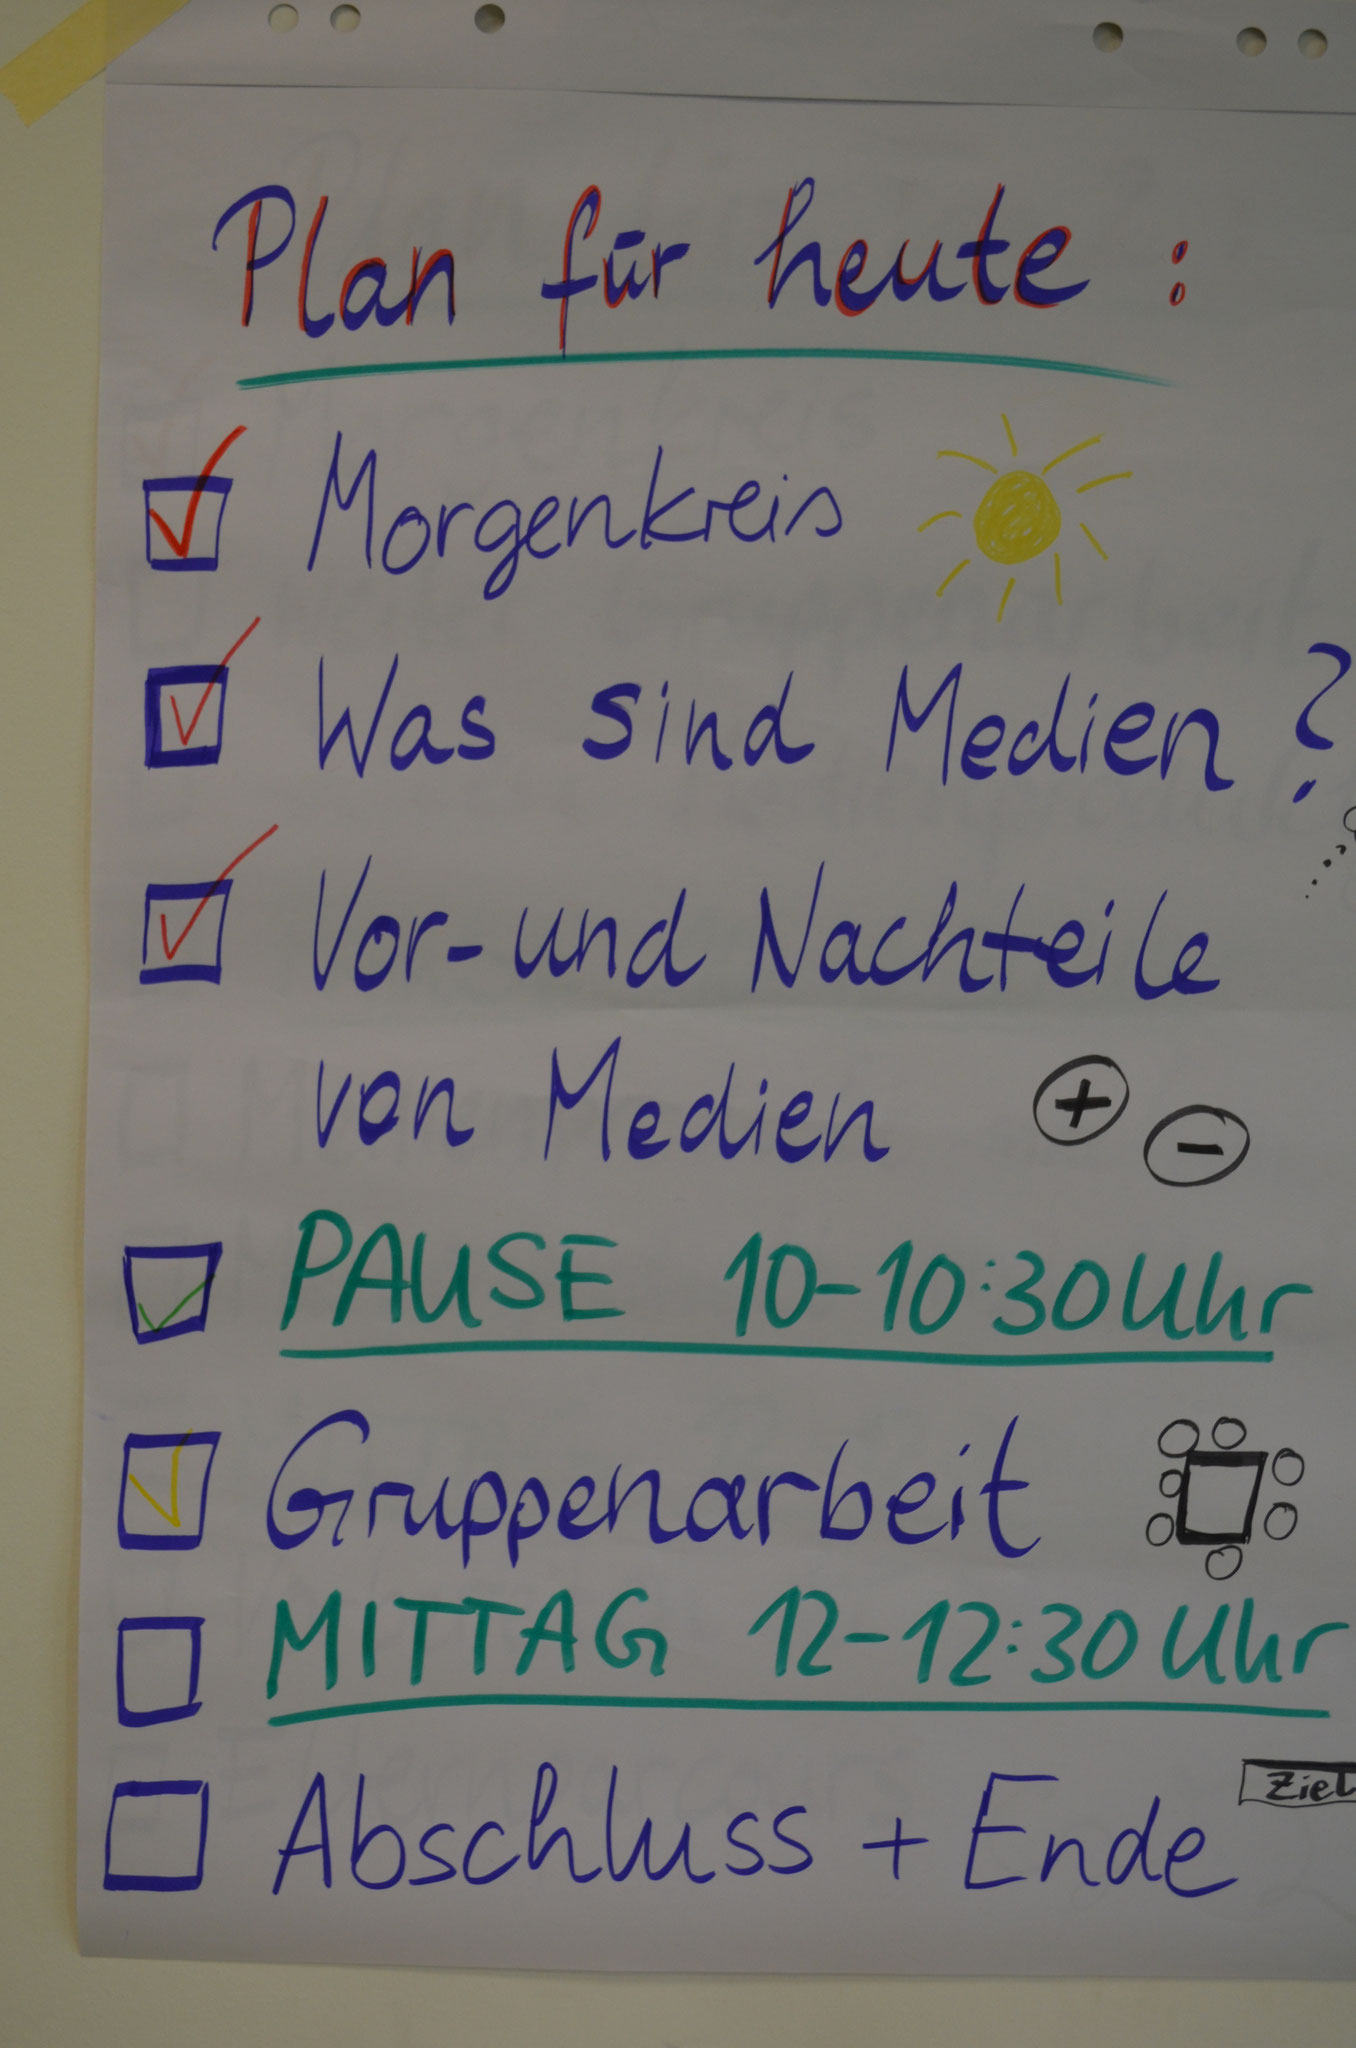 Plan für heute :
Morgenkreis
Was sind Medien ?
Vor- und Nachteile
von Medien
+ -
PAUSE 10-10:30 Uhr
Gruppenarbeit
MITTAG 12-12:30 Uhr
Ziel
Abschluss + Ende